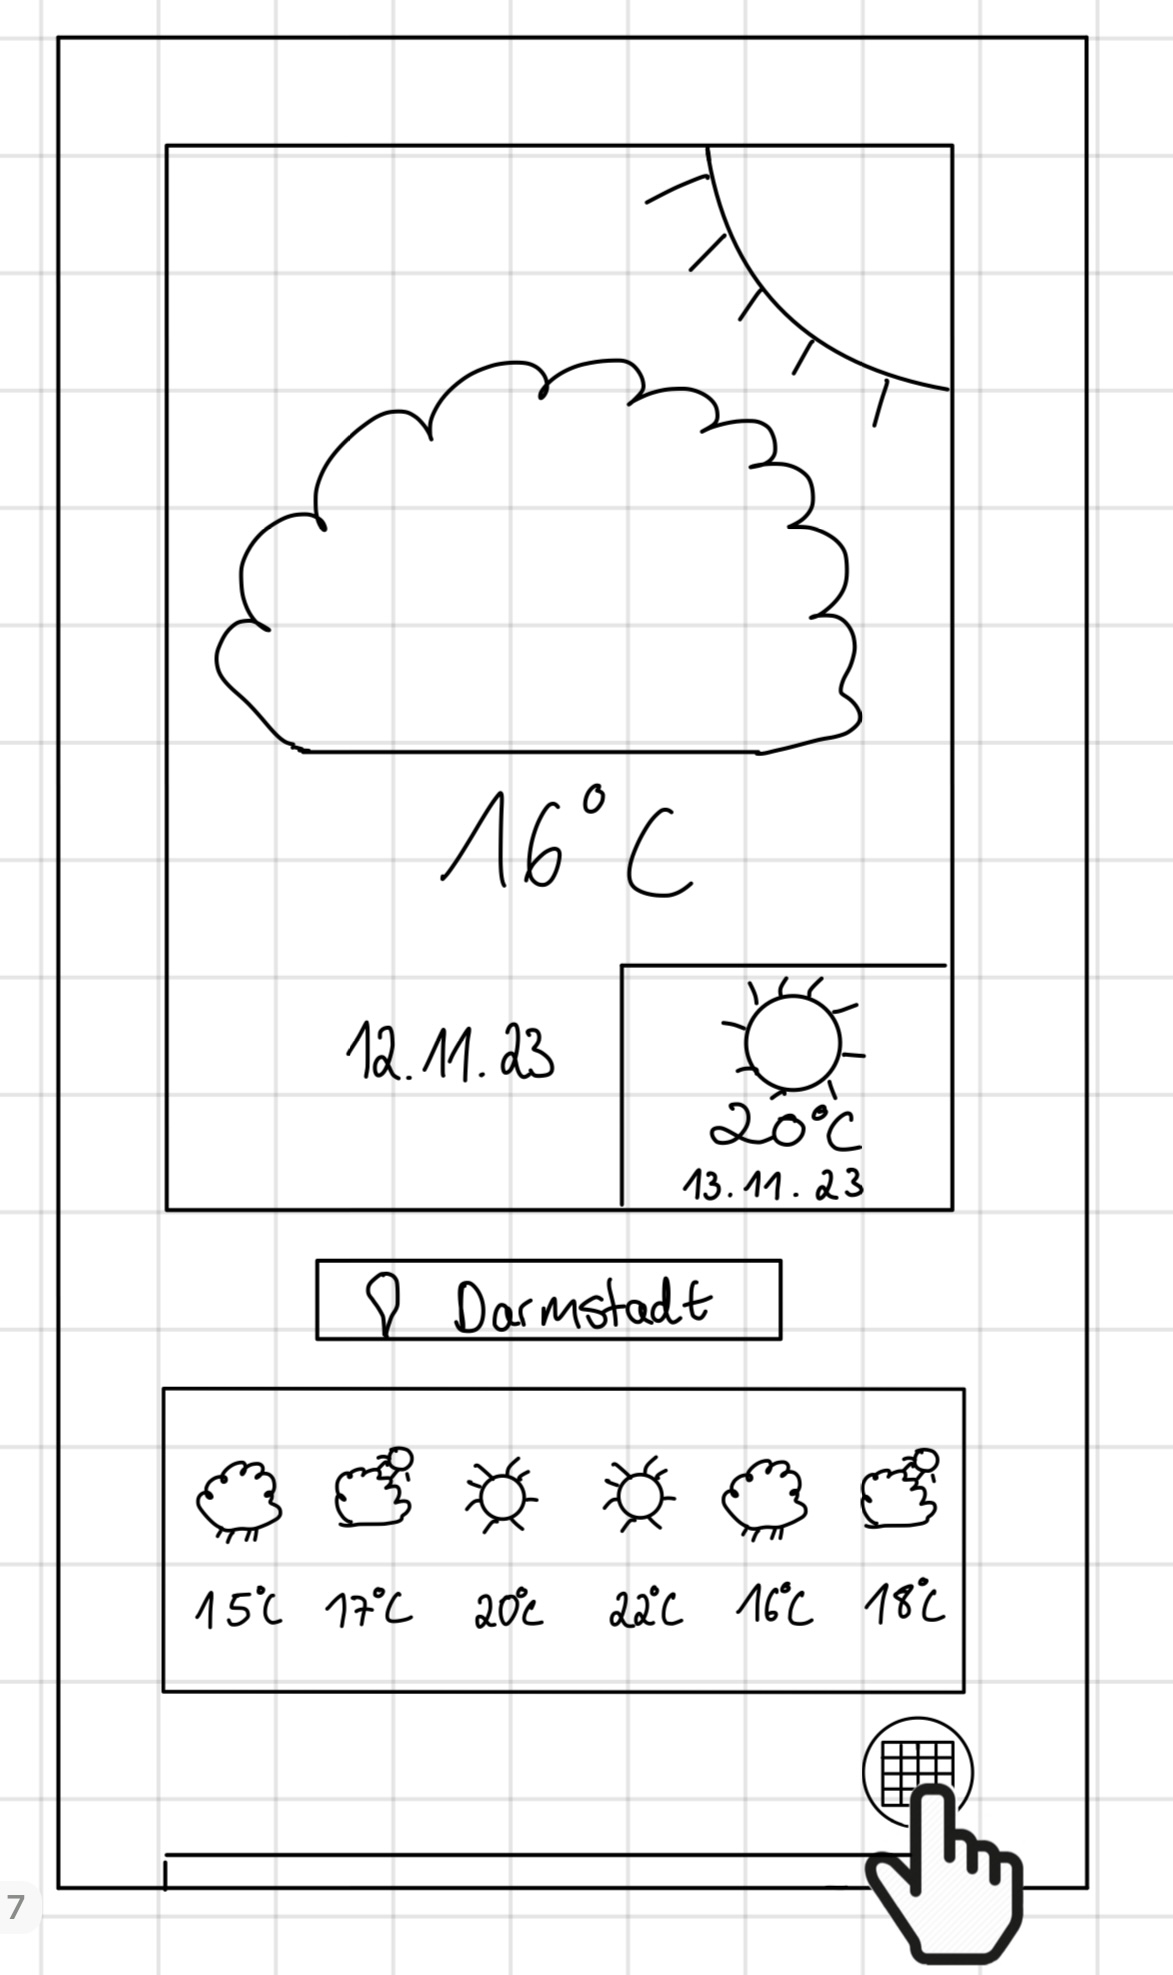 16°C
12.11.23
20°C
13.11.23
Darmstadt
15°C 17°C 20°C 22°C 16°C 18°C
7